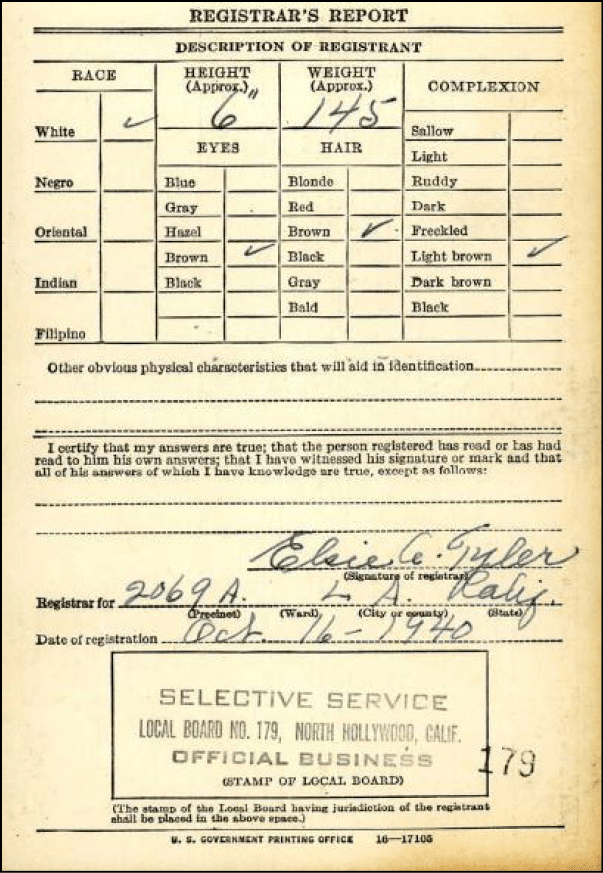 REGISTRAR'S REPORT
DESCRIPTION OF REGISTRANT
RACE
HEIGHT
(Approx.)
WEIGHT
(Approx.)
COMPLEXION
6"
145
White ✓
EYES
HAIR
Sallow
Light
Negro
Blue
Blonde
Ruddy
Gray
Red
Dark
Oriental
Hazel
Brown ✓
Freckled
Brown ✓
Black
Light brown ✓
Indian
Black
Gray
Dark brown
Bald
Black
Filipino
Other obvious physical characteristics that will aid in identification
I certify that my answers are true; that the person registered has read or has had
read to him his own answers; that I have witnessed his signature or mark and that
all of his answers of which I have knowledge are true, except as follows:
Elsie A. Tyler
(Signature of registrar)
Registrar for 2069 A. L A. Calif.
(Precinct) (Ward) (City or county) (State)
Date of registration Oct. 16-1940
SELECTIVE SERVICE
LOCAL BOARD NO. 179, NORTH HOLLYWOOD, CALIF.
OFFICIAL BUSINESS
179
(STAMP OF LOCAL BOARD)
(The stamp of the Local Board having jurisdiction of the registrant
shall be placed in the above space.)
U. S. GOVERNMENT PRINTING OFFICE 16—17105